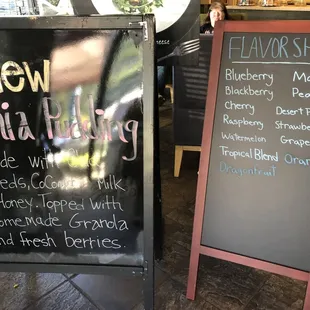 new
ia Pudding
de with
eds, CoConut Milk
Honey. Topped with
omemade Granola
and fresh berries.
FLAVOR SH
Blueberry Ma
Blackberry Pea
Cherry Desert P
Raspberry Strawbe
Watermelon Grape
Tropical Blend Oran
Dragonfruit
cheese